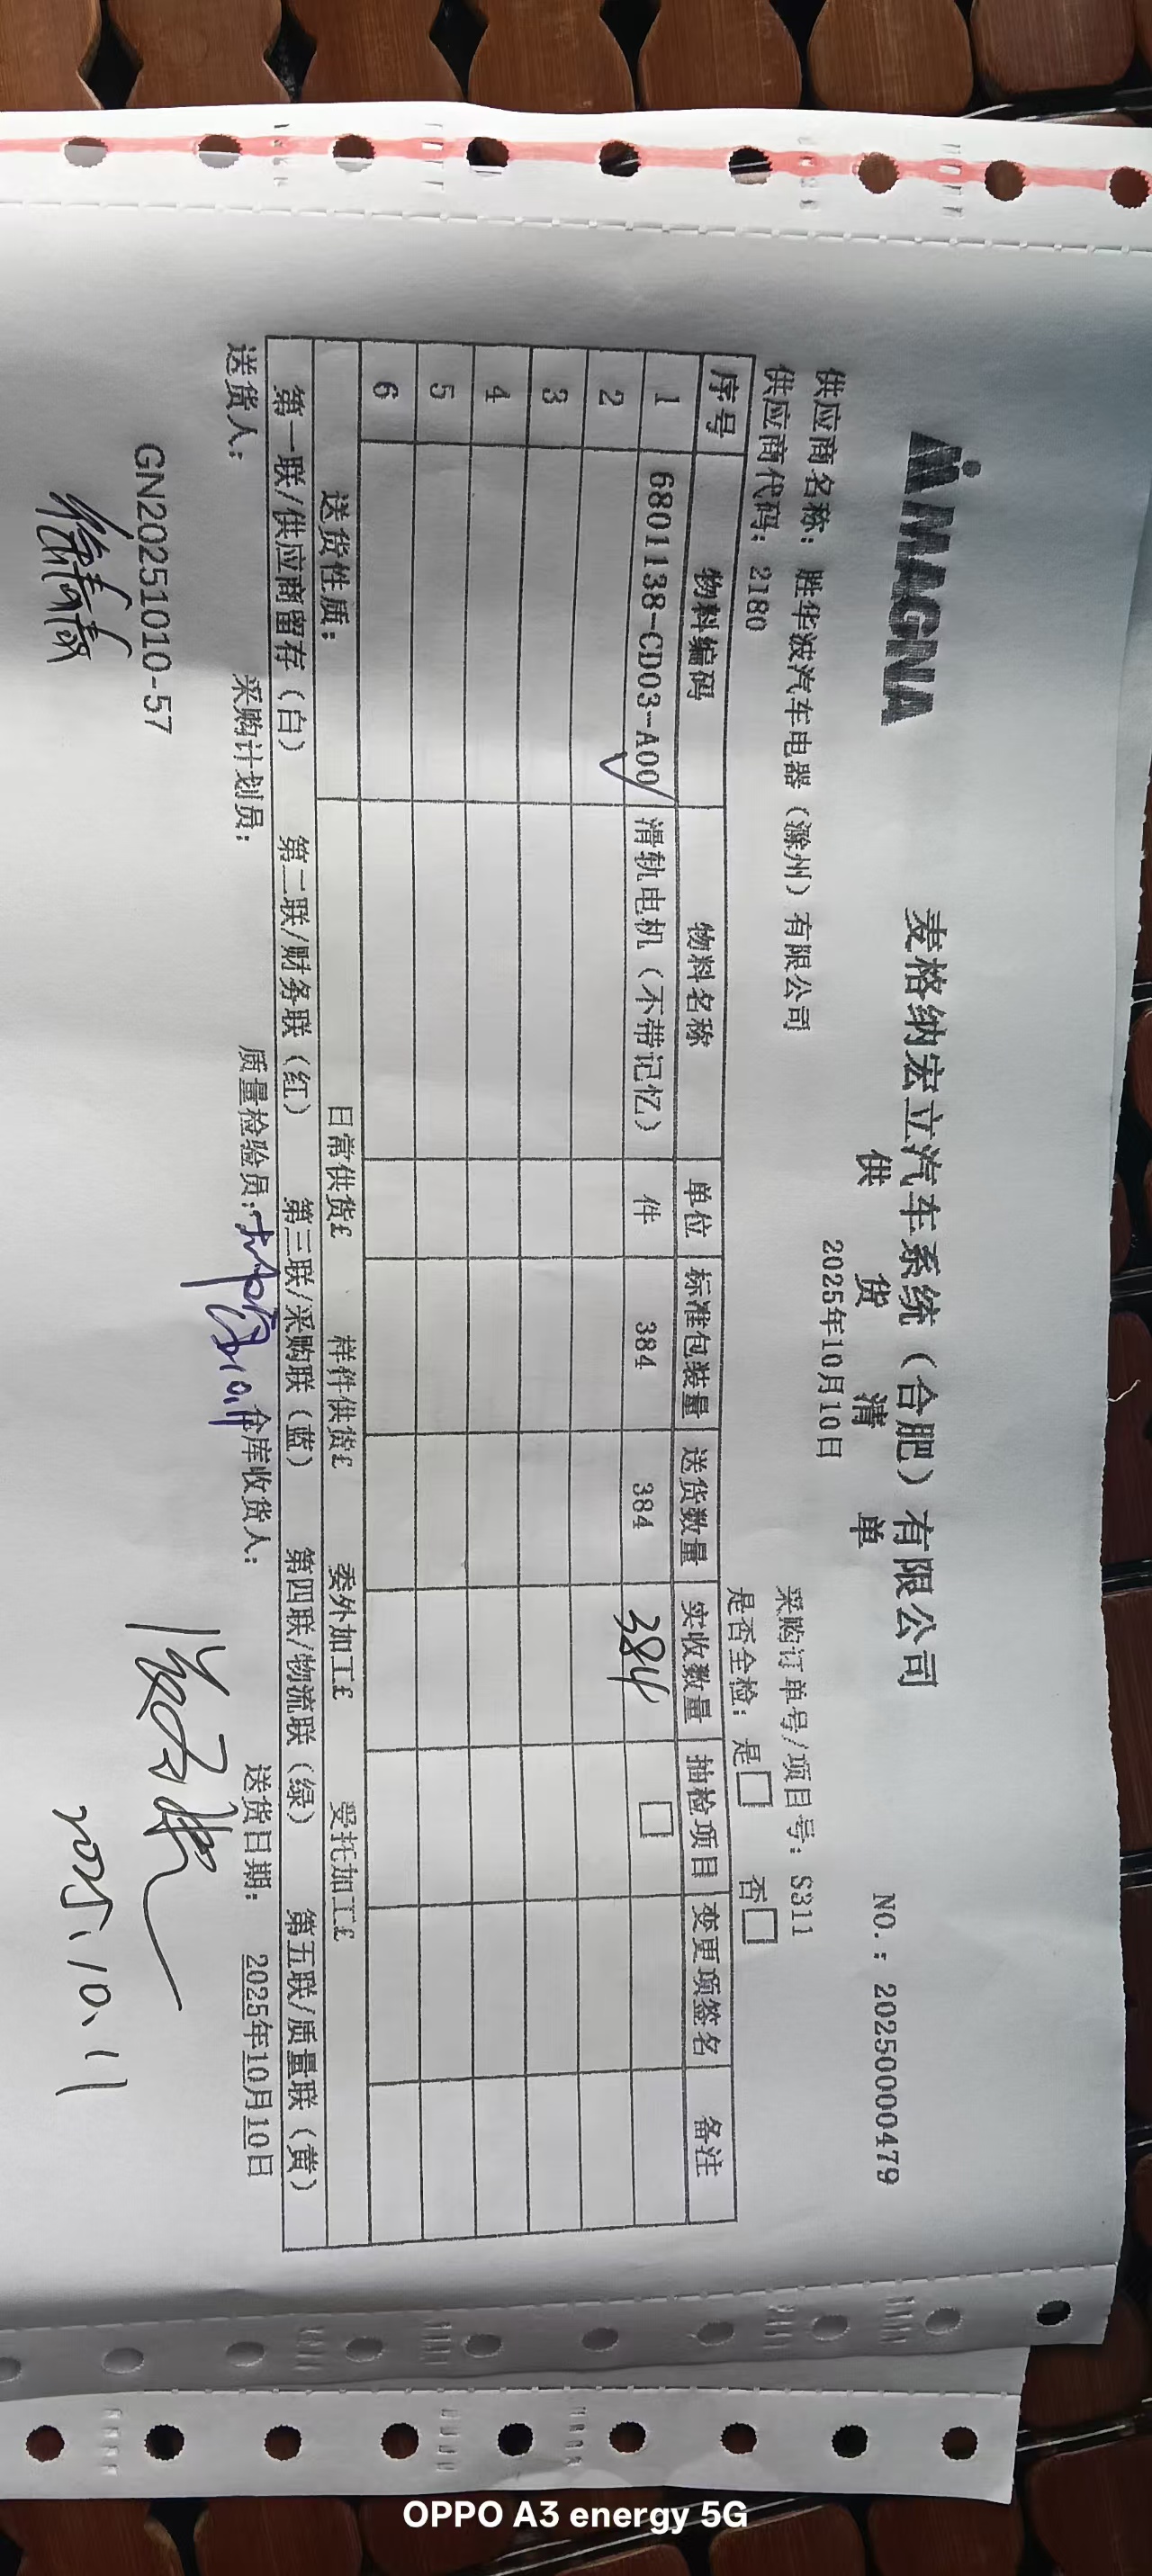 MAGNA
麦格纳宏立汽车系统（合肥）有限公司
供 货 清 单
NO.: 20250000479
2025年10月10日
供应商名称: 胜华波汽车电器（滁州）有限公司
采购订单号/项目号: S311
供应商代码: 2180
是否全检: 是□ 否□
序号 物料编码 物料名称 单位 标准包装量 送货数量 实收数量 抽检项目 变更项签名 备注
1 6801138-CD03-A00 滑轨电机（不带记忆） 件 384 384 384 □
2
3
4
5
6
送货性质: 日常供货£ 样件供货£ 委外加工£ 受托加工£
第一联/供应商留存（白） 第二联/财务联（红） 第三联/采购联（蓝） 第四联/物流联（绿） 第五联/质量联（黄）
送货人: 采购计划员: 质量检验员: 10.11 仓库收货人: 送货日期: 2025年10月10日
GN20251010-57
2025.10.11
OPPO A3 energy 5G